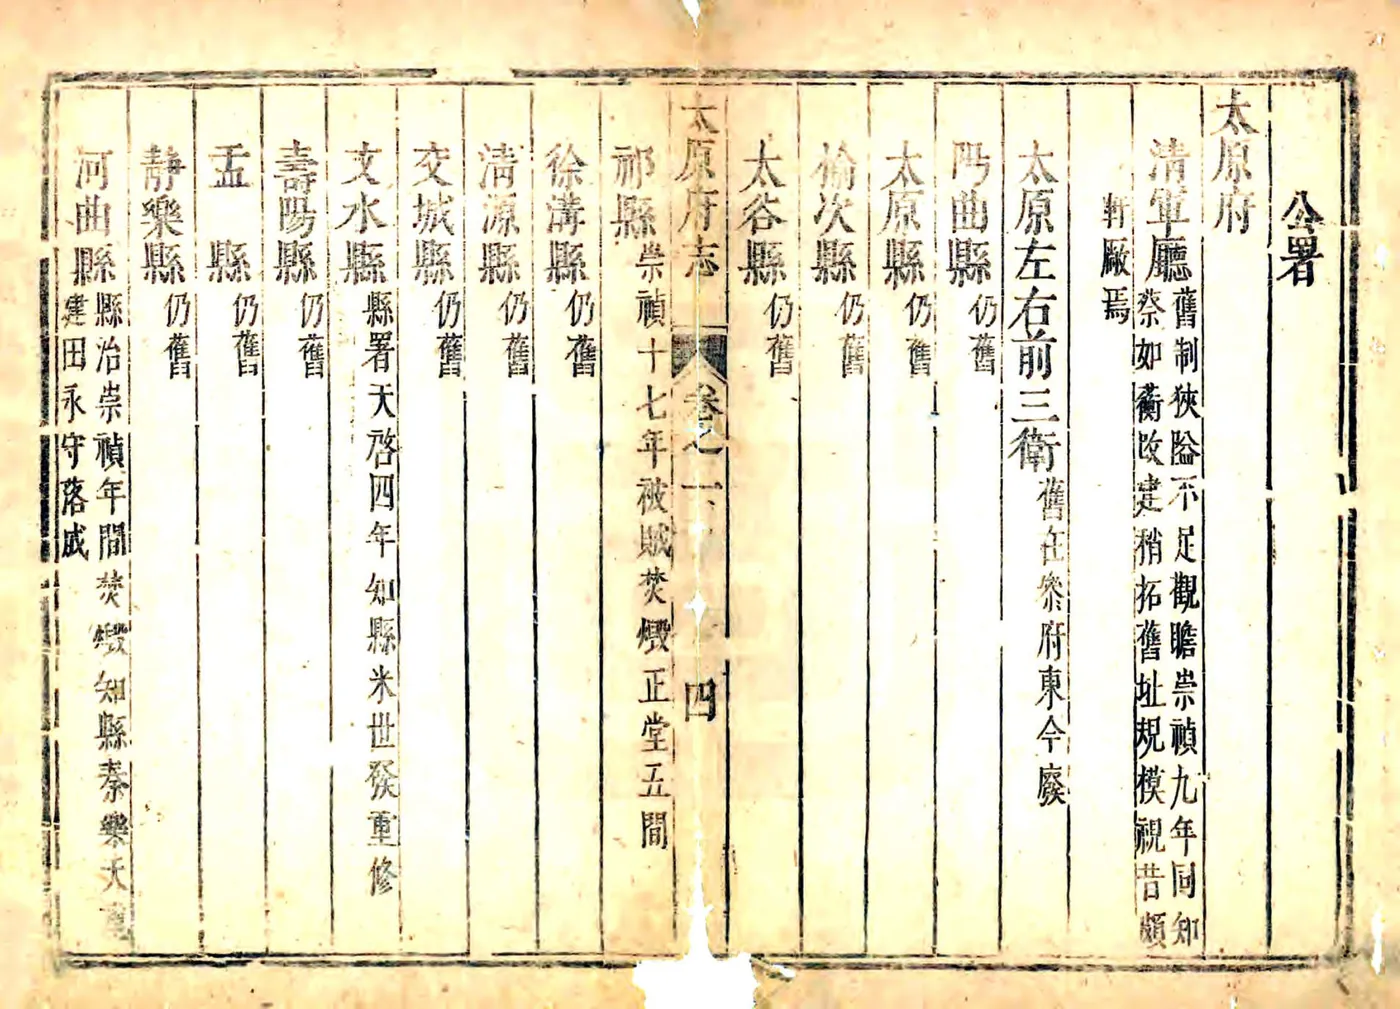 公署
太原府
清軍廳舊制狹隘不足觀瞻崇禎九年同知
蔡如蘅改建稍拓舊址規模視昔頗
軒厰焉
太原左右前三衛舊在叅府東今廢
陽曲縣仍舊
太原縣仍舊
榆次縣仍舊
太谷縣仍舊
太原府志 卷之一 四
祁縣崇禎十七年被賊焚燬正堂五間
徐溝縣仍舊
清源縣仍舊
交城縣仍舊
文水縣縣署天啓四年知縣米世發重修
壽陽縣仍舊
盂縣仍舊
靜樂縣仍舊
河曲縣縣治崇禎年間焚燬知縣秦樂天重
建田永守落成